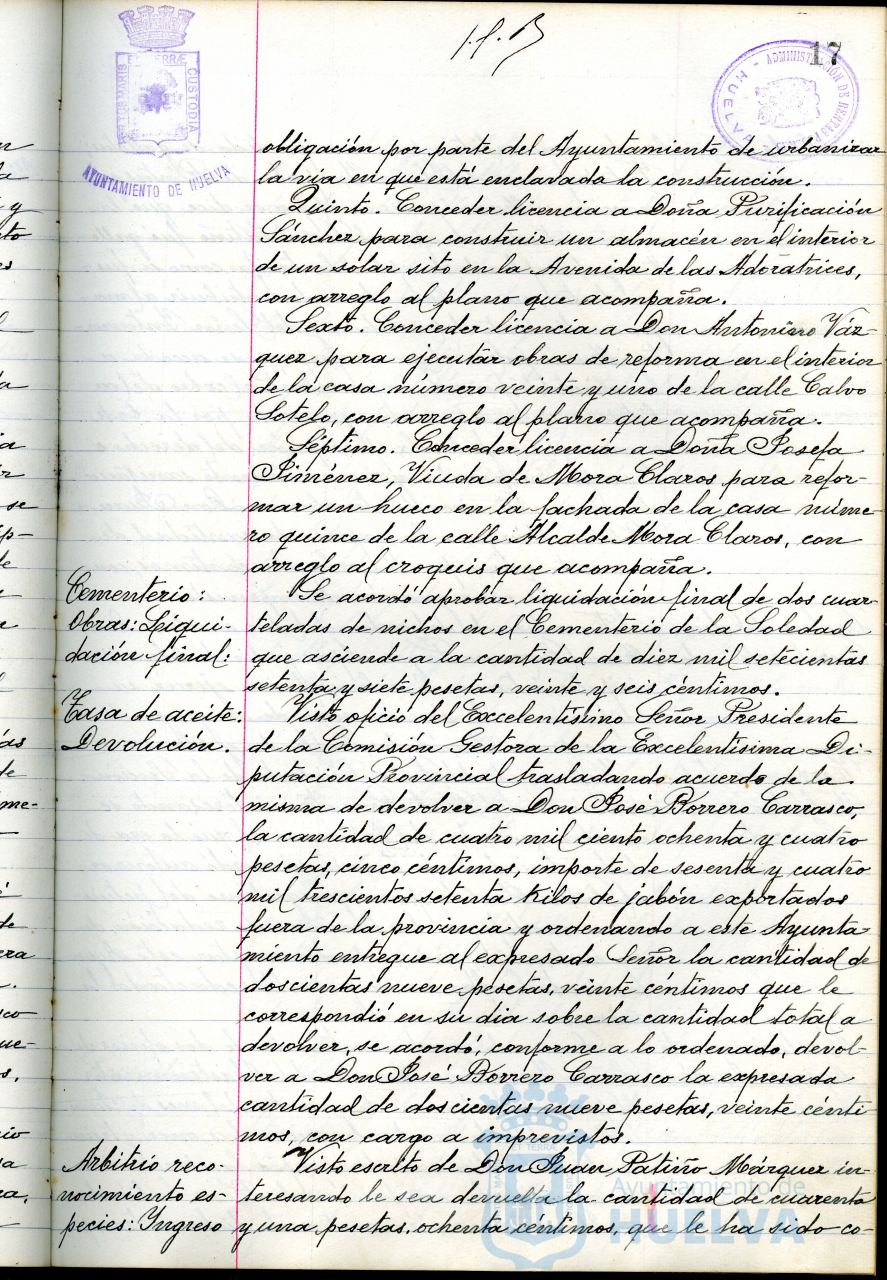 17
ADMINISTRACIÓN DE RENTAS
HUELVA
CUSTODIA
AYUNTAMIENTO DE HUELVA
obligación por parte del Ayuntamiento de urbanizar
la via en que está enclavada la construcción.
Quinto. Conceder licencia a Doña Purificación
Sánchez para construir un almacén en el interior
de un solar sito en la Avenida de las Adoratrices,
con arreglo al plano que acompaña.
Sexto. Conceder licencia a Don Antonino Váz-
quez para ejecutar obras de reforma en el interior
de la casa número veinte y uno de la calle Calvo
Sotelo, con arreglo al plano que acompaña.
Séptimo. Conceder licencia a Doña Josefa
Jiménez, Viuda de Mora Claros para refor-
mar un hueco en la fachada de la casa núme-
ro quince de la calle Alcalde Mora Claros, con
arreglo al croquis que acompaña.
Cementerio:
Obras: Liqui-
dación final:
Se acordó aprobar liquidación final de dos cuar-
teladas de nichos en el Cementerio de la Soledad
que asciende a la cantidad de diez mil setecientas
setenta y siete pesetas, veinte y seis céntimos.
Tasa de aceite:
Devolución.
Visto oficio del Excelentísimo Señor Presidente
de la Comisión Gestora de la Excelentísima Di-
putación Provincial trasladando acuerdo de la
misma de devolver a Don José Borrero Carrasco,
la cantidad de cuatro mil ciento ochenta y cuatro
pesetas, cinco céntimos, importe de sesenta y cuatro
mil trescientos setenta Kilos de jabón exportados
fuera de la provincia y ordenando a este Ayunta-
miento entregue al expresado Señor la cantidad de
doscientas nueve pesetas, veinte céntimos que le
correspondió en su dia sobre la cantidad total a
devolver, se acordó, conforme a lo ordenado, devol-
ver a Don José Borrero Carrasco la expresada
cantidad de doscientas nueve pesetas, veinte cénti-
mos, con cargo a imprevistos.
Arbitrio reco-
nocimiento es-
pecies: Ingreso
Visto escrito de Don Juan Patiño Márquez in-
teresando le sea devuelta la cantidad de cuarenta
y una pesetas, ochenta céntimos, que le ha sido co-
Ayuntamiento de
HUELVA